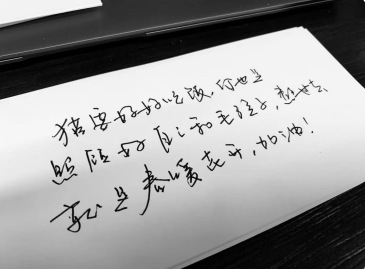 猫要好好吃饭，你也要
照顾好自己和毛孩子，熬过去
就是春暖花开，加油！